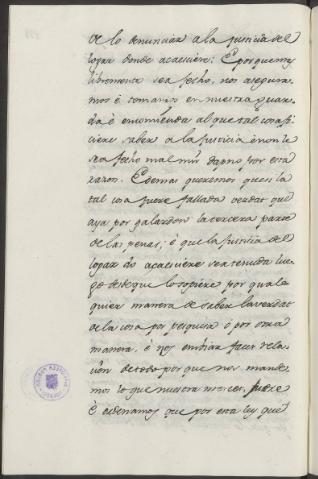 de lo denunciar a la justicia del
logar donde acaesciere: E por que mas
libremente sea fecho, nos asegura-
mos é tomamos en nuestra guar-
da é encomienda al que tal cosa fi-
ciere saber a la justicia é non le
sea fecho mal nin dapno por esta
razon. E demas queremos que si la
tal cosa fuere fallada verdat que
aya por galardon la tercera parte
de las penas; é que la justicia del
logar do acaesciere sea tenuda lue-
go desde que lo sopiere por qual-
quier manera de saber la verdat
de la cosa por pesquisa ó por otra
manera, é nos embiar facer rela-
cion de todo por que nos mande-
mos lo que nuestra merced fuere
é ordenamos que por esta ley que